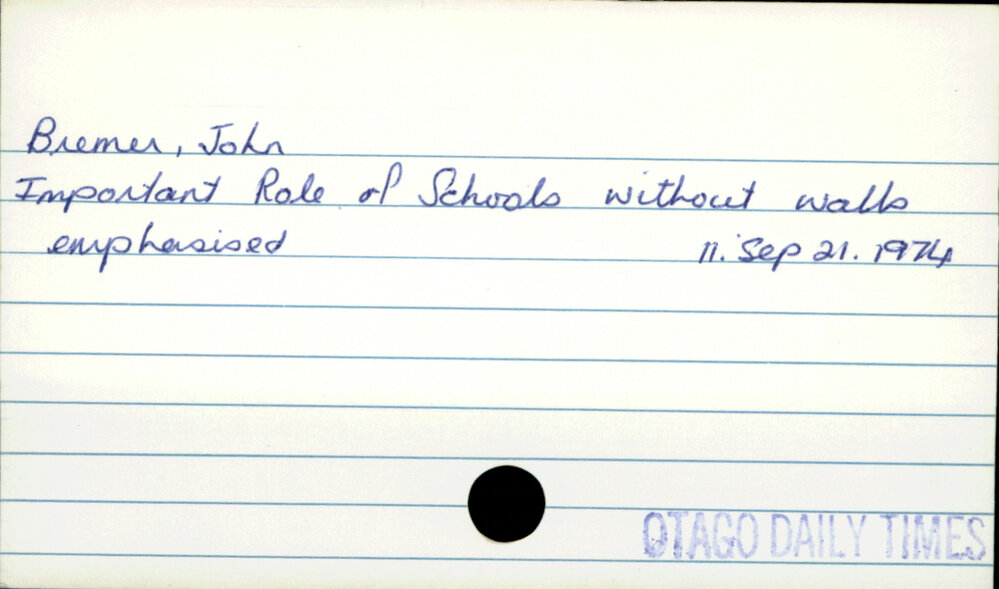 Bremer, John
Important Role of Schools without walls
emphasised 11. Sep 21. 1974
OTAGO DAILY TIMES